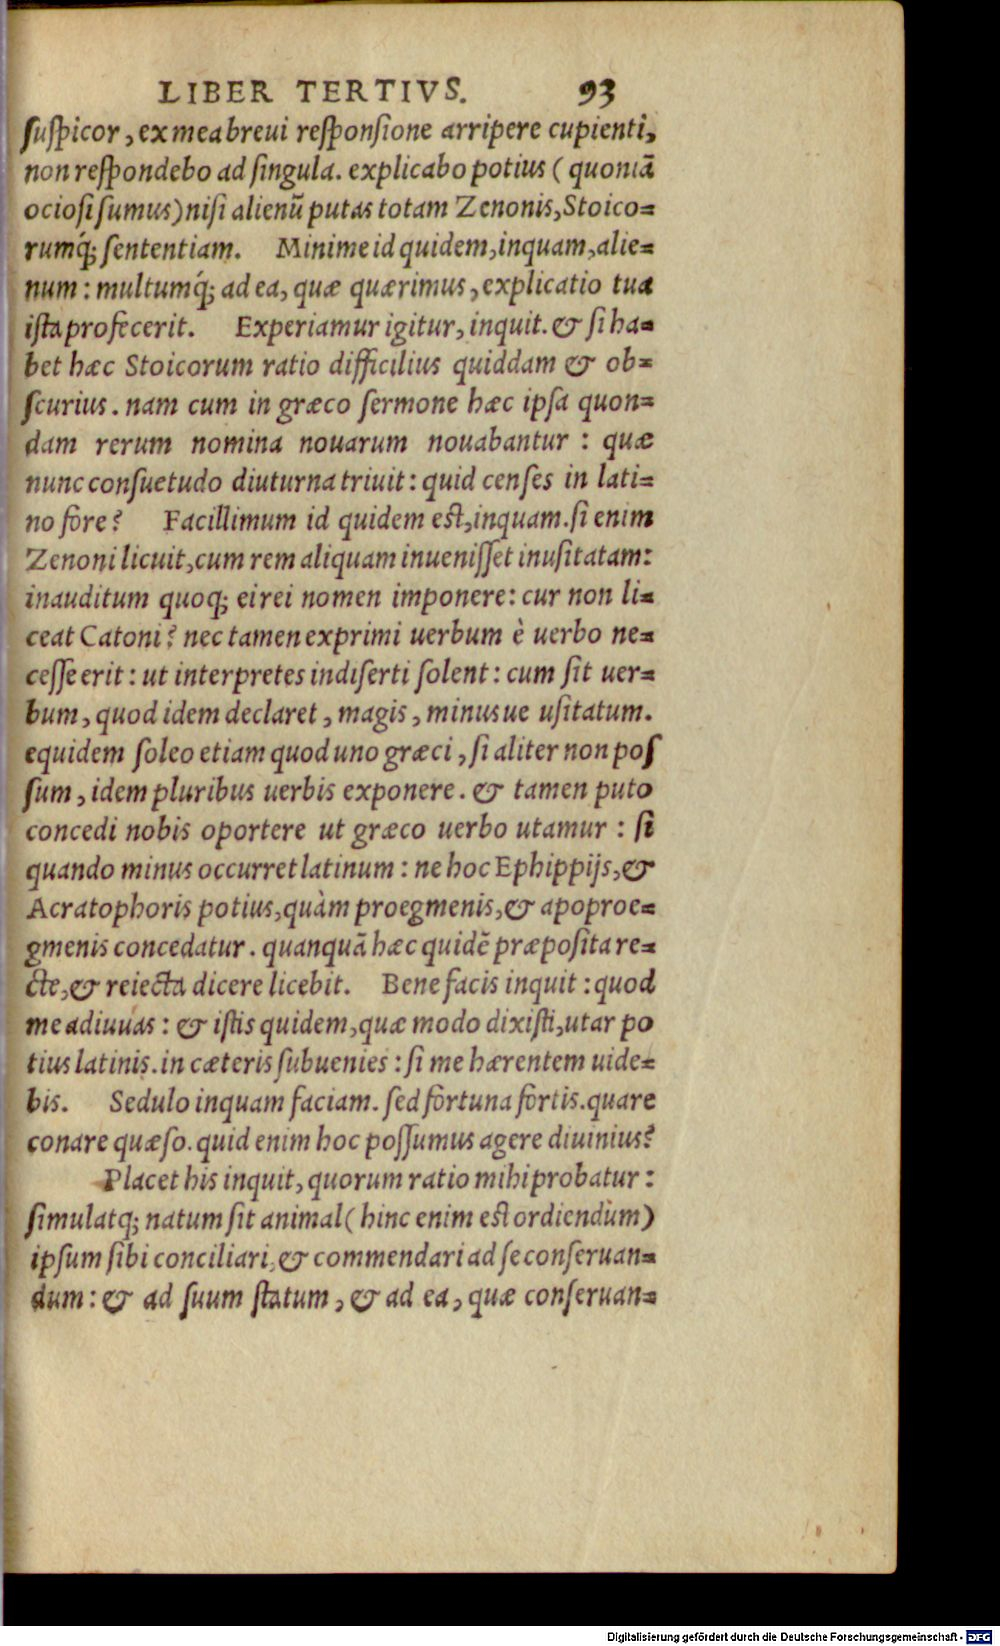 LIBER TERTIVS. 93
suſpicor, ex mea breui reſponſione arripere cupienti,
non reſpondebo ad ſingula. explicabo potius ( quoniā
ocioſi ſumus) niſi alienū putas totam Zenonis, Stoico=
rumq́; ſententiam. Minime id quidem, inquam, alie=
num : multumq́; ad ea, quæ quærimus, explicatio tua
iſta profecerit. Experiamur igitur, inquit. & ſi ha=
bet hæc Stoicorum ratio difficilius quiddam & ob=
ſcurius. nam cum in græco ſermone hæc ipſa quon=
dam rerum nomina nouarum nouabantur : quæ
nunc conſuetudo diuturna triuit : quid cenſes in lati=
no fore? Facillimum id quidem eſt, inquam. ſi enim
Zenoni licuit, cum rem aliquam inueniſſet inuſitatam:
inauditum quoq; ei rei nomen imponere: cur non li=
ceat Catoni? nec tamen exprimi uerbum è uerbo ne=
ceſſe erit : ut interpretes indiſerti ſolent : cum ſit uer=
bum, quod idem declaret, magis, minusue uſitatum.
equidem ſoleo etiam quod uno græci, ſi aliter non poſ
ſum, idem pluribus uerbis exponere. & tamen puto
concedi nobis oportere ut græco uerbo utamur : ſi
quando minus occurret latinum : ne hoc Ephippijs, &
Acratophoris potius, quàm proegmenis, & apoproe=
gmenis concedatur. quanquā hæc quidē præpoſita re=
cte, & reiecta dicere licebit. Bene facis inquit : quod
me adiuuas : & iſtis quidem, quæ modo dixiſti, utar po
tius latinis. in cæteris ſubuenies : ſi me hærentem uide=
bis. Sedulo inquam faciam. ſed fortuna fortis. quare
conare quæſo. quid enim hoc poſſumus agere diuinius?
Placet his inquit, quorum ratio mihi probatur :
ſimulatq; natum ſit animal ( hinc enim eſt ordiendum)
ipſum ſibi conciliari, & commendari ad ſe conſeruan=
dum : & ad ſuum ſtatum, & ad ea, quæ conſeruan=
Digitalisierung gefördert durch die Deutsche Forschungsgemeinschaft - DFG